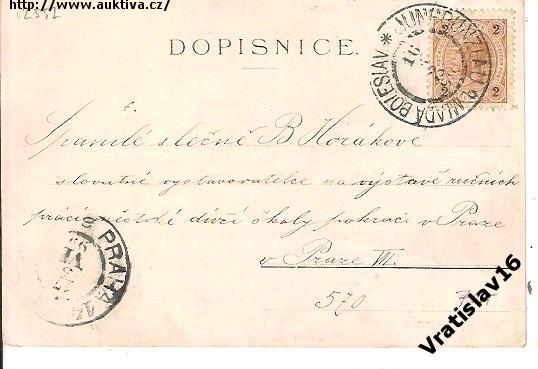 https://www.auktiva.cz/
DOPISNICE.
JUNGBUNZLAU * MLADÁ BOLESLAV *
2 2
2 2
Spanilé slečně B. Horákové
slovutné vystavovatelce na výstavě ručních
prací městské dívčí školy pokrač. v Praze
v Praze III.
570
PRAHA
Vratislav16